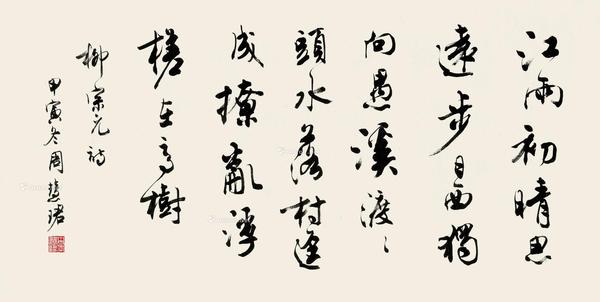 江雨初晴思
遠步日西獨
向愚溪渡〻
頭水落村逕
成撩亂浮
槎在高樹
柳宗元詩
甲寅冬周慧珺